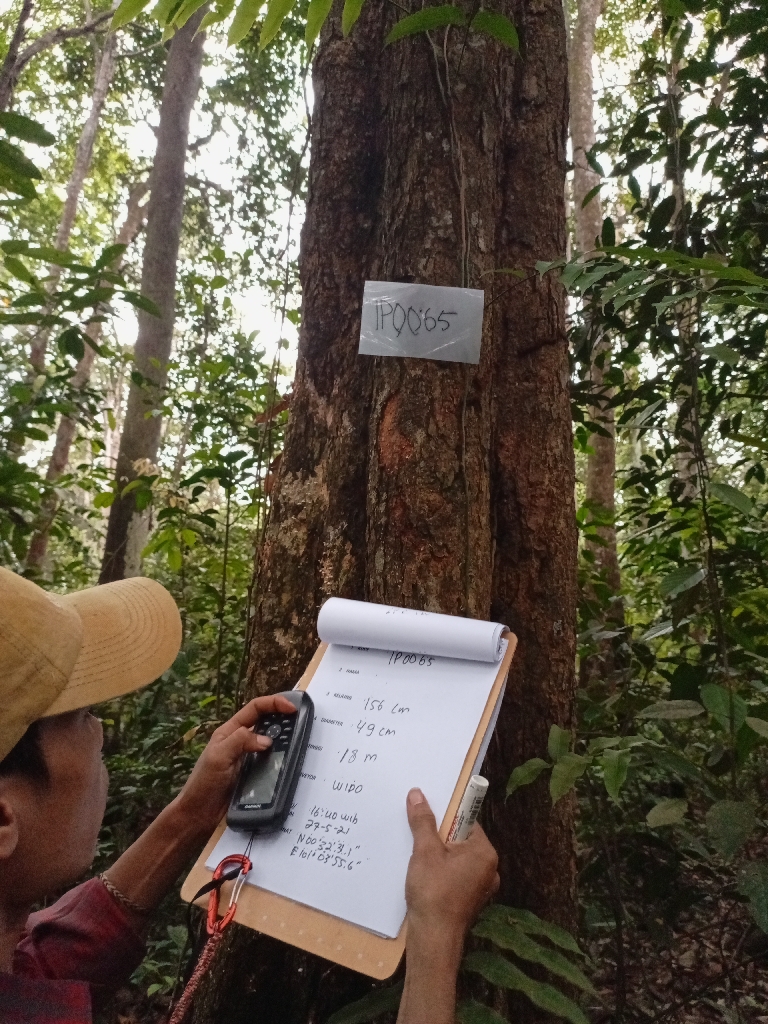 IP0065
IP0065
2 NAMA
3 KELILING : 156 cm
4 DIAMETER : 49 cm
: 18 m
: WIDO
16:40 wib
27-5-21
N 00°32'31.1"
E 101°03'55.6"
GARMIN